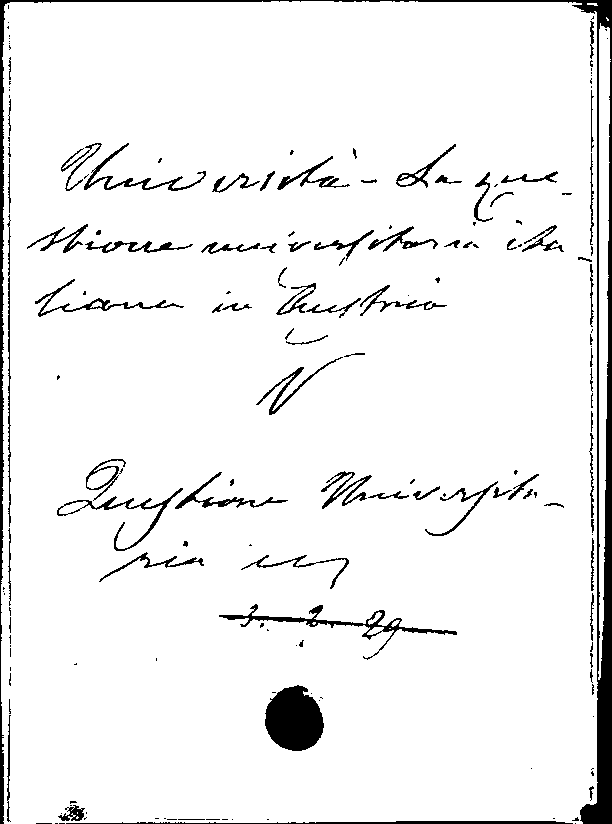 Università - La que-
stione universitaria ita-
liana in Austria
V
Questione Universita-
ria in
3. 2. 29